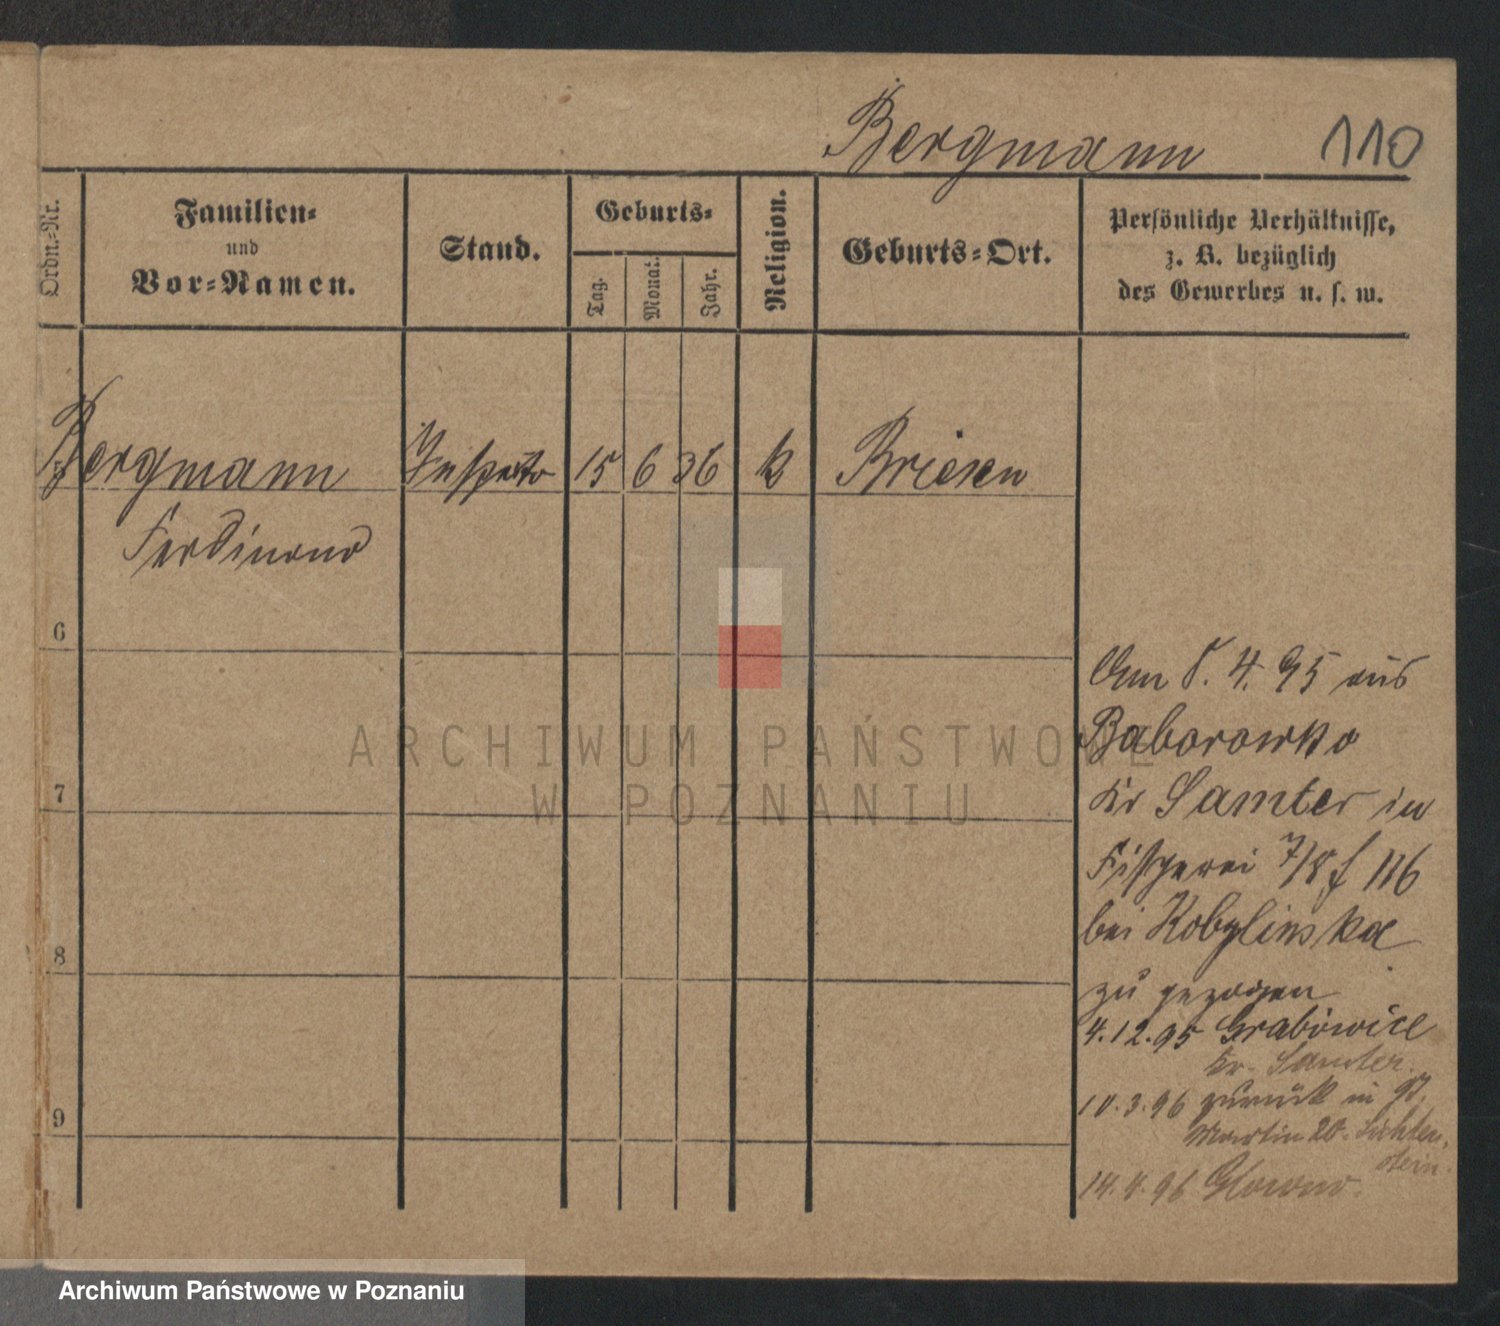 Bergmann 110
Ordn.-Nr.
Familien-
und
Vor-Namen.
Stand.
Geburts-
Tag.
Monat.
Jahr.
Religion.
Geburts-Ort.
Persönliche Verhältnisse,
z. B. bezüglich
des Gewerbes u. s. w.
5 Bergmann Inspekto 15 6 36 k Briesen
Ferdinand
6
7
8
9
Am 8. 4. 95 aus
Baborowko
Kr Samter in
Fischerei 7/8 f 116
bei Kobylinska
zu gezogen
4.12.95 Grabowice
Kr. Samter.
10.3.96 zurück in St.
Martin 20. Lichten-
stein.
14.4.96 Glowno.
ARCHIWUM PAŃSTWOWE
W POZNANIU
Archiwum Państwowe w Poznaniu